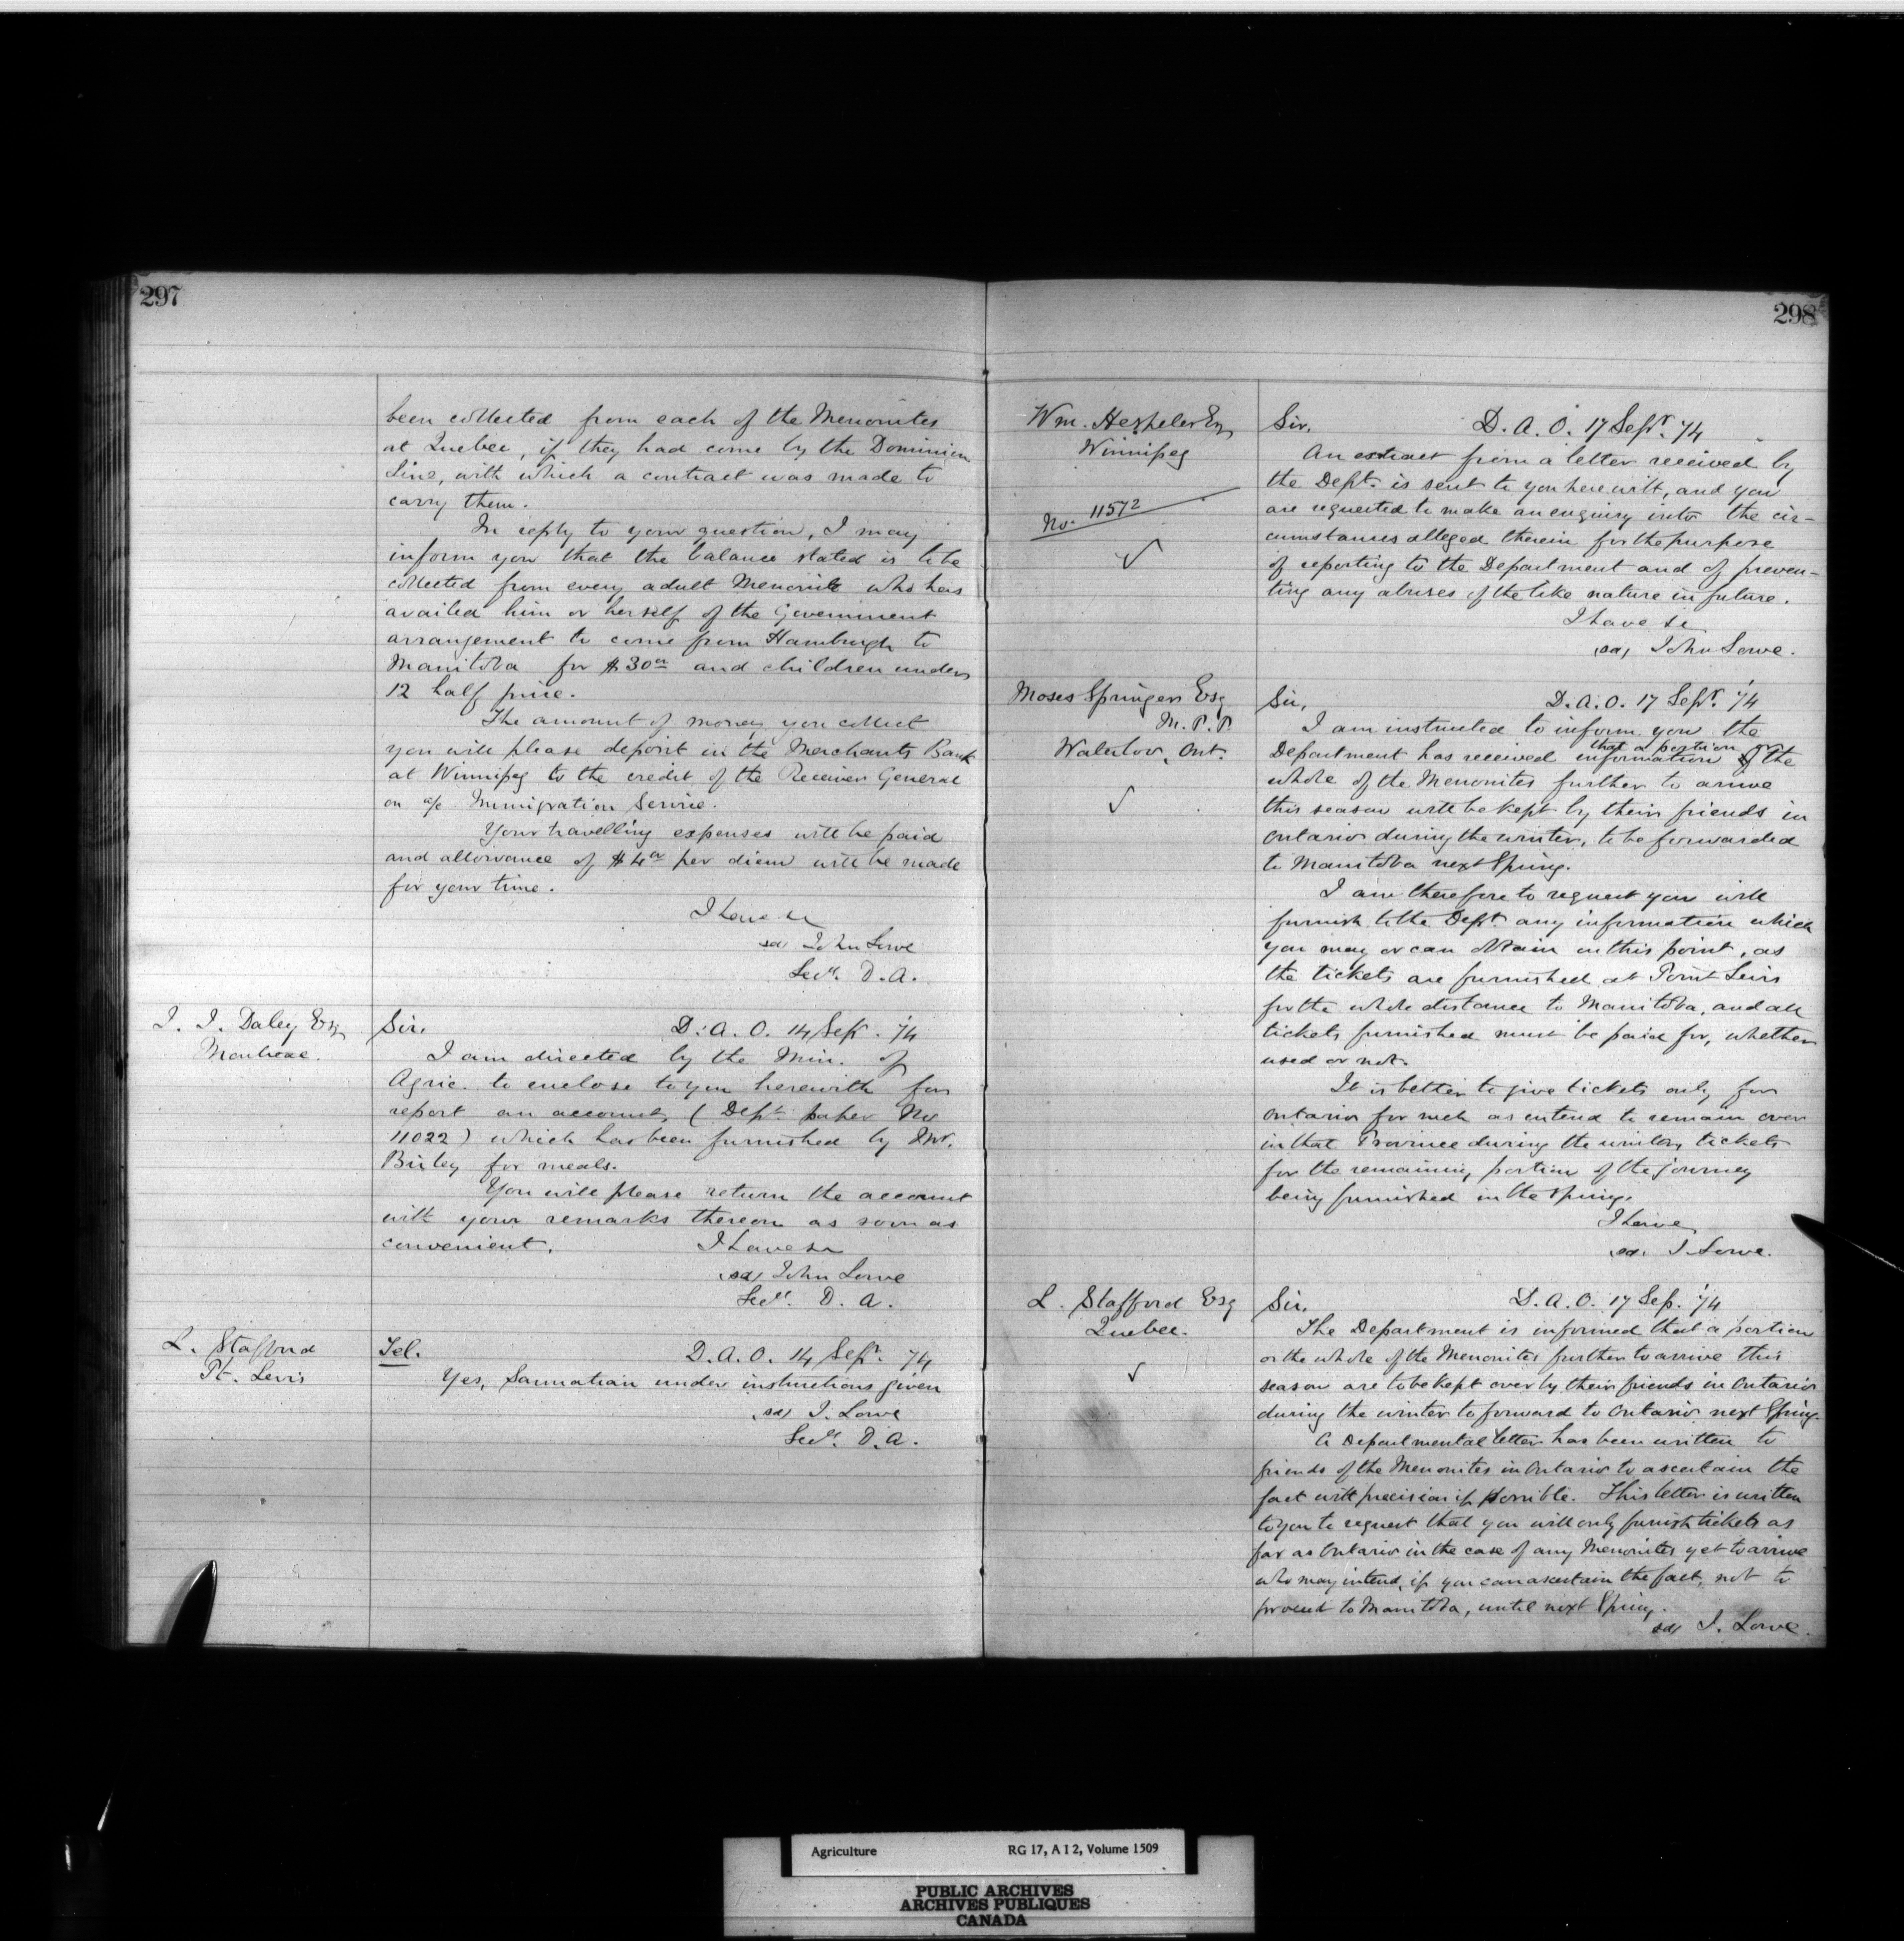 297
been collected from each of the Menonites
at Quebec, if they had come by the Dominion
Line, with which a contract was made to
carry them.
In reply to your question, I may
inform you that the balance stated is to be
collected from every adult Menonite who has
availed him or herself of the Government
arrangement to come from Hamburgh to
Manitoba for $30 and children under
12 half price.
The amount of money you collect
you will please deposit in the Merchants Bank
at Winnipeg to the credit of the Receiver General
on a/c Immigration Service.
Your travelling expenses will be paid
and allowance of $4 per diem will be made
for your time.
I have &c
sd/ John Lowe
Secy. D. A.
J. J. Daley Esq
Montreal.
Sir, D. A. O. 14 Sept. '74
I am directed by the Min. of
Agric. to enclose to you herewith for
report an account, (Dept. paper No
11022) which has been furnished by Mr.
for meals.
You will please return the account
with your remarks thereon as soon as
convenient. I have &c
(sd) John Lowe
Secy. D. A.
L. Stafford
Pt. Levis
Tel. D. A. O. 14 Sept. 74
Yes, Sarmatian under instructions given
(sd) J. Lowe
Secy. D. A.
298
Wm. Hespeler Esq
Winnipeg
No. 11572
Sir, D. A. O. 17 Sept. '74
An extract from a letter received by
the Dept. is sent to you herewith, and you
are requested to make an enquiry into the cir-
cumstances alleged therein for the purpose
of reporting to the Department and of preven-
ting any abuses of the like nature in future.
I have &c
(sd) John Lowe.
Moses Springer Esq
M. P. P.
Waterloo, Ont.
Sir, D. A. O. 17 Sept. '74
I am instructed to inform you the
Department has received information that a portion or the
whole of the Menonites further to arrive
this season will be kept by their friends in
Ontario during the winter, to be forwarded
to Manitoba next Spring.
I am therefore to request you will
furnish to the Dept. any information which
you may or can obtain on this point, as
the tickets are furnished at Point Levis
for the whole distance to Manitoba, and all
tickets furnished must be paid for, whether
used or not.
It is better to give tickets only for
Ontario for such as intend to remain over
in that Province during the winter, tickets
for the remaining portion of the journey
being furnished in the Spring.
I have
(sd) J. Lowe.
L. Stafford Esq
Quebec.
Sir, D. A. O. 17 Sep. '74
The Department is informed that a portion
or the whole of the Menonites further to arrive this
season are to be kept over by their friends in Ontario
during the winter to forward to Ontario next Spring.
A Departmental letter has been written to
friends of the Menonites in Ontario to ascertain the
fact with precision if possible. This letter is written
to you to request that you will only furnish tickets as
far as Ontario in the case of any Menonites yet to arrive
who may intend, if you can ascertain the fact, not to
proceed to Manitoba, until next Spring.
sd/ J. Lowe.
Agriculture RG 17, A I 2, Volume 1509
PUBLIC ARCHIVES
ARCHIVES PUBLIQUES
CANADA